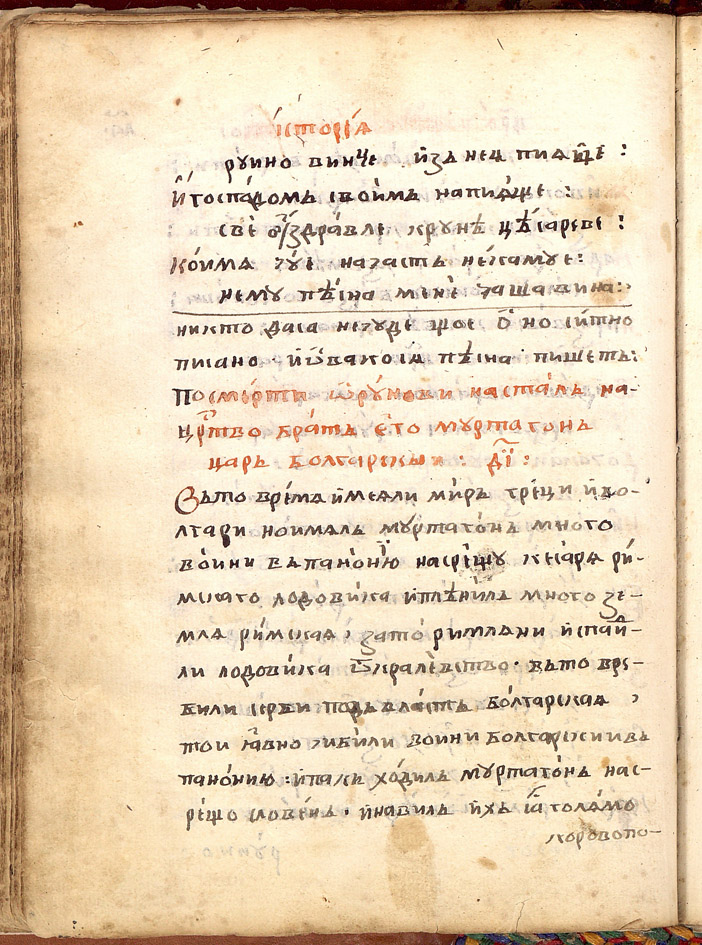 історїа
руино винче изь нея пиаще :
и господомь своимь напиаще :
све ѿ здравле крунѣ цѣсареве :
коимя чуе начасть не самуе :
нему пѣсна мене
никто даса нечуде що
писано и ѿвакоіа пѣсна пишеть :
По смерти ѿ рунови насталь на-
цр͒тво брать его муртагонь
царь болгарскы : д҃і :
Вьто врема имеали мирь греци и бо-
лгари но ималь муртагонь много
воини вь панонїю насрещу кесаря ри-
мскаго лодовика и плѣнилъ много зе-
мля римская , зато римляни испаⷣ-
ли лодовика ѿ кралевство . вьто вре-
били серби подь власть болгарская ,
тои явно чибили воини болгарскии вь
панонию : и пакь ходиль муртагонь нас-
рещо словень . и навиль ихь и голамо
коровопо-